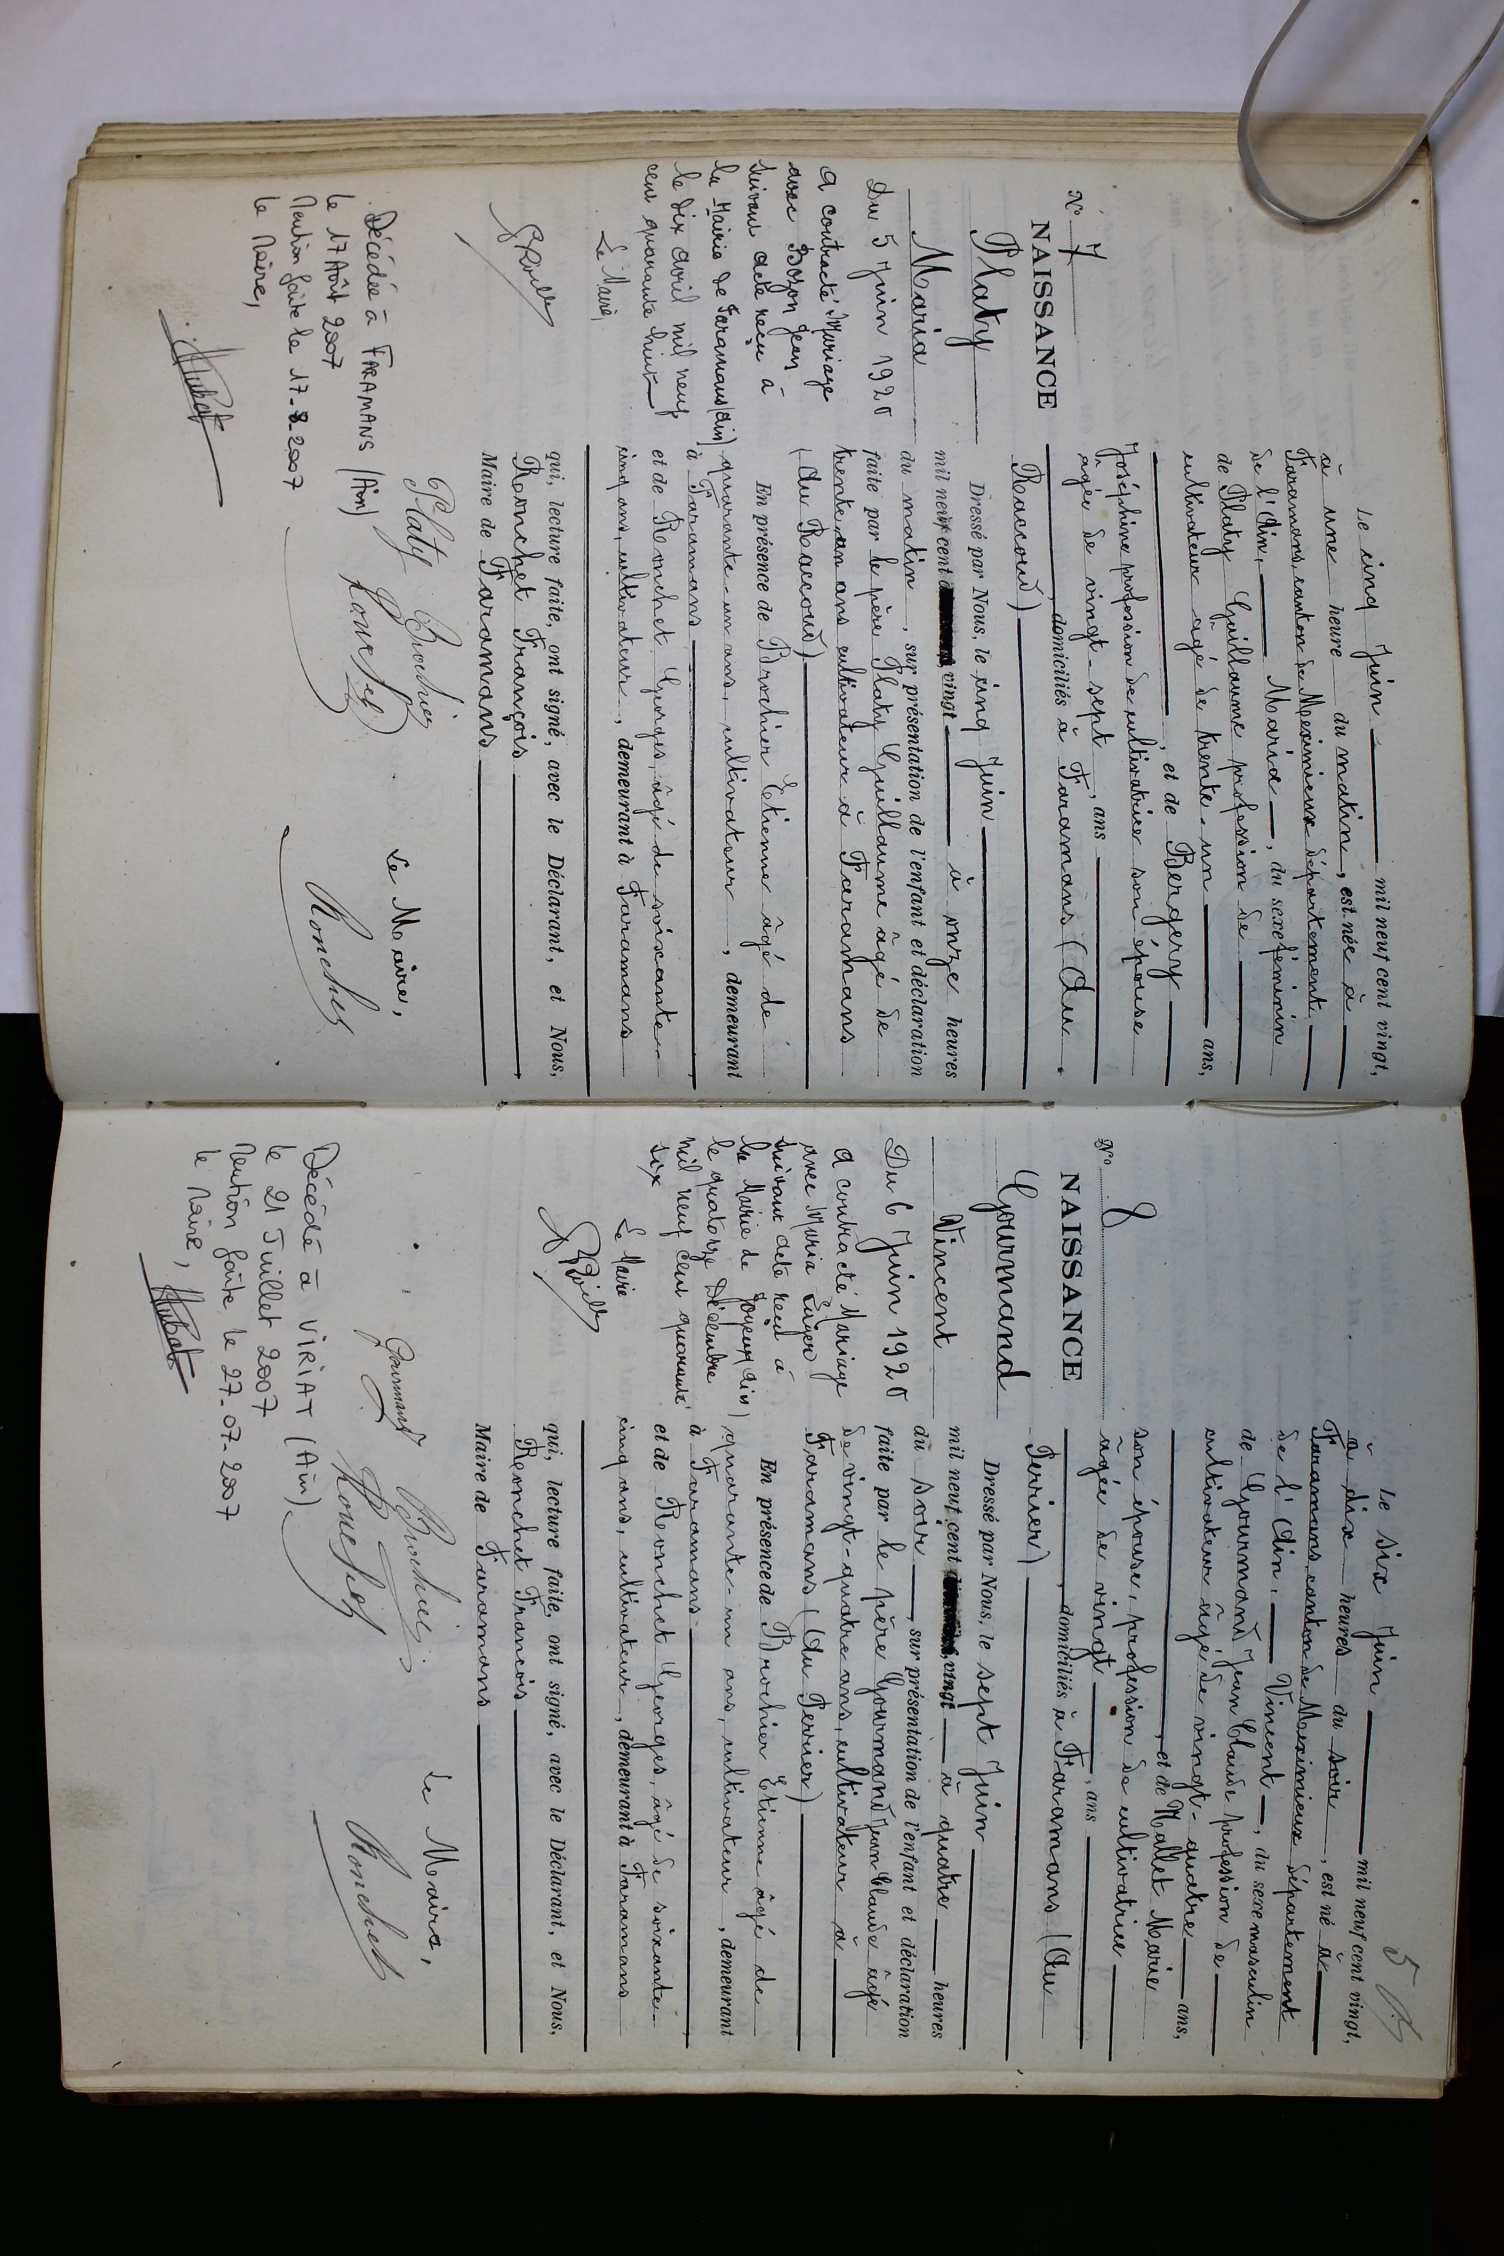 N° 7
NAISSANCE
Platy
Maria
Du 5 Juin 1920
A contracté Mariage
avec Bozon Jean
suivant acte reçu à
la Mairie de Faramans (Ain)
le dix avril mil neuf
cent quarante huit
Le Maire,
Décédée à FARAMANS (Ain)
le 17 Août 2007
Mention faite le 17-8-2007
Le Maire,
Le cinq Juin mil neuf cent vingt,
à une heure du matin, est née à
Faramans, canton de Meximieux département
de l'Ain, Maria, du sexe féminin
de Platy Guillaume profession de
cultivateur âgé de trente-un ans,
, et de Bergery
Joséphine profession de cultivatrice son épouse
âgée de vingt-sept, ans
, domiciliés à Faramans (Au
Raccoud)
Dressé par Nous, le cinq Juin
mil neuf cent vingt à onze heures
du matin, sur présentation de l'enfant et déclaration
faite par le père Platy Guillaume âgé de
trente-un ans cultivateur à Faramans
(Au Raccoud)
En présence de Brochier Etienne âgé de
quarante-un ans, cultivateur, demeurant
à Faramans
et de Ronchet Georges, âgé de soixante-
cinq ans, cultivateur, demeurant à Faramans
qui, lecture faite, ont signé, avec le Déclarant, et Nous,
Ronchet François
Maire de Faramans
Le Maire,
Platy Brochier
Ronchet
Ronchet
5
N° 8
NAISSANCE
Gourmand
Vincent
Du 6 Juin 1920
A contracté Mariage
avec Maria
suivant acte reçu à
la Mairie de Joyeux (Ain)
le quatorze Décembre
mil neuf cent quarante
six
Le Maire
Décédé à VIRIAT (Ain)
le 21 Juillet 2007
Mention faite le 27-07-2007
Le Maire,
Le six Juin mil neuf cent vingt,
à dix heures du soir, est né à
Faramans, canton de Meximieux département
de l'Ain, Vincent, du sexe masculin
de Gourmand Jean Claude profession de
cultivateur âgé de vingt-quatre ans,
, et de Mallet Marie
son épouse, profession de cultivatrice
âgée de vingt, ans
, domiciliés à Faramans (Au
Perrier)
Dressé par Nous, le sept Juin
mil neuf cent vingt à quatre heures
du soir, sur présentation de l'enfant et déclaration
faite par le père Gourmand Jean Claude âgé
de vingt-quatre ans, cultivateur à
Faramans (Au Perrier)
En présence de Brochier Etienne âgé de
quarante-un ans, cultivateur, demeurant
à Faramans
et de Ronchet Georges, âgé de soixante-
cinq ans, cultivateur, demeurant à Faramans
qui, lecture faite, ont signé, avec le Déclarant, et Nous,
Ronchet François
Maire de Faramans
Le Maire,
Gourmand Brochier
Ronchet
Ronchet